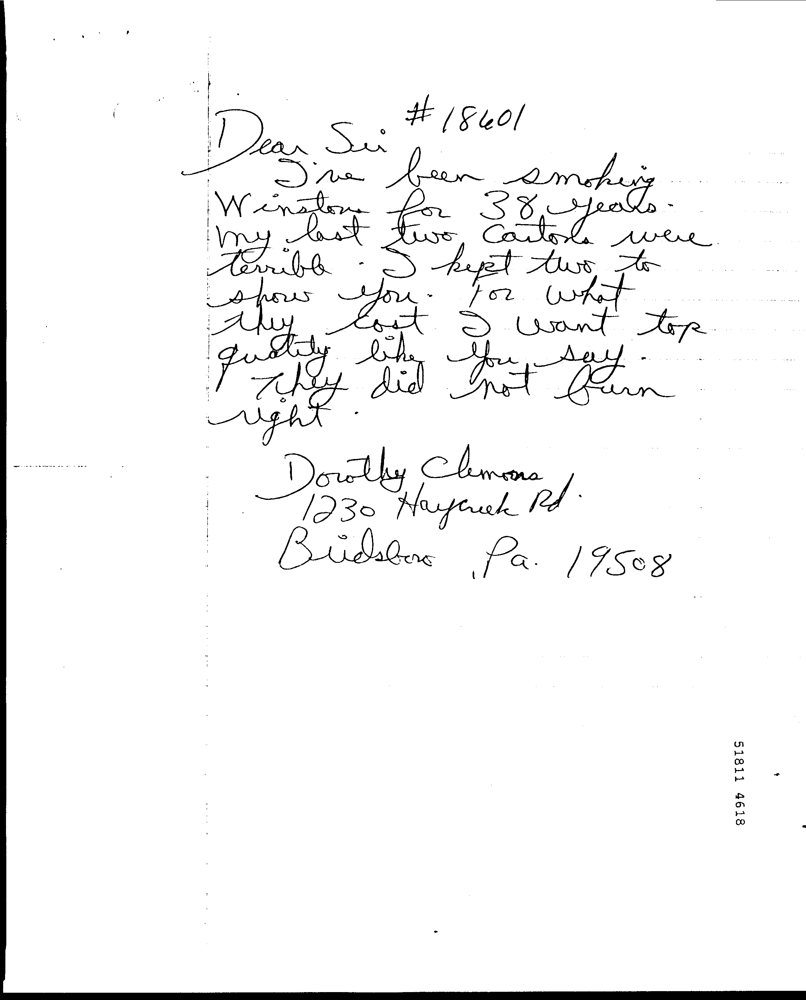 # 18601
Dear Sir
I've been smoking
Winstons for 38 years.
my last two cartons were
terrible. I kept two to
show you. For what
they cost I want top
quality like you say.
They did not burn
right.
Dorothy Clemons
1230 Haycreek Rd.
Birdsboro, Pa. 19508
51811 4618